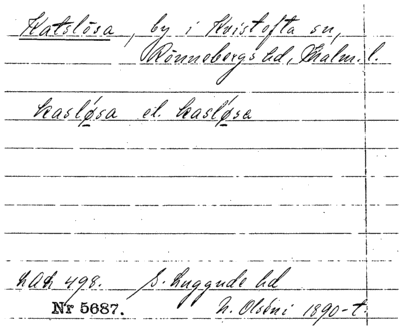 Katslösa, by i Kvistofta sn,
Rönnebergs hd, Malm. l.
kasløsa el. kasløsa
LAL 498. S. Luggude hd
Nr 5687. N. Olséni 1890-t.